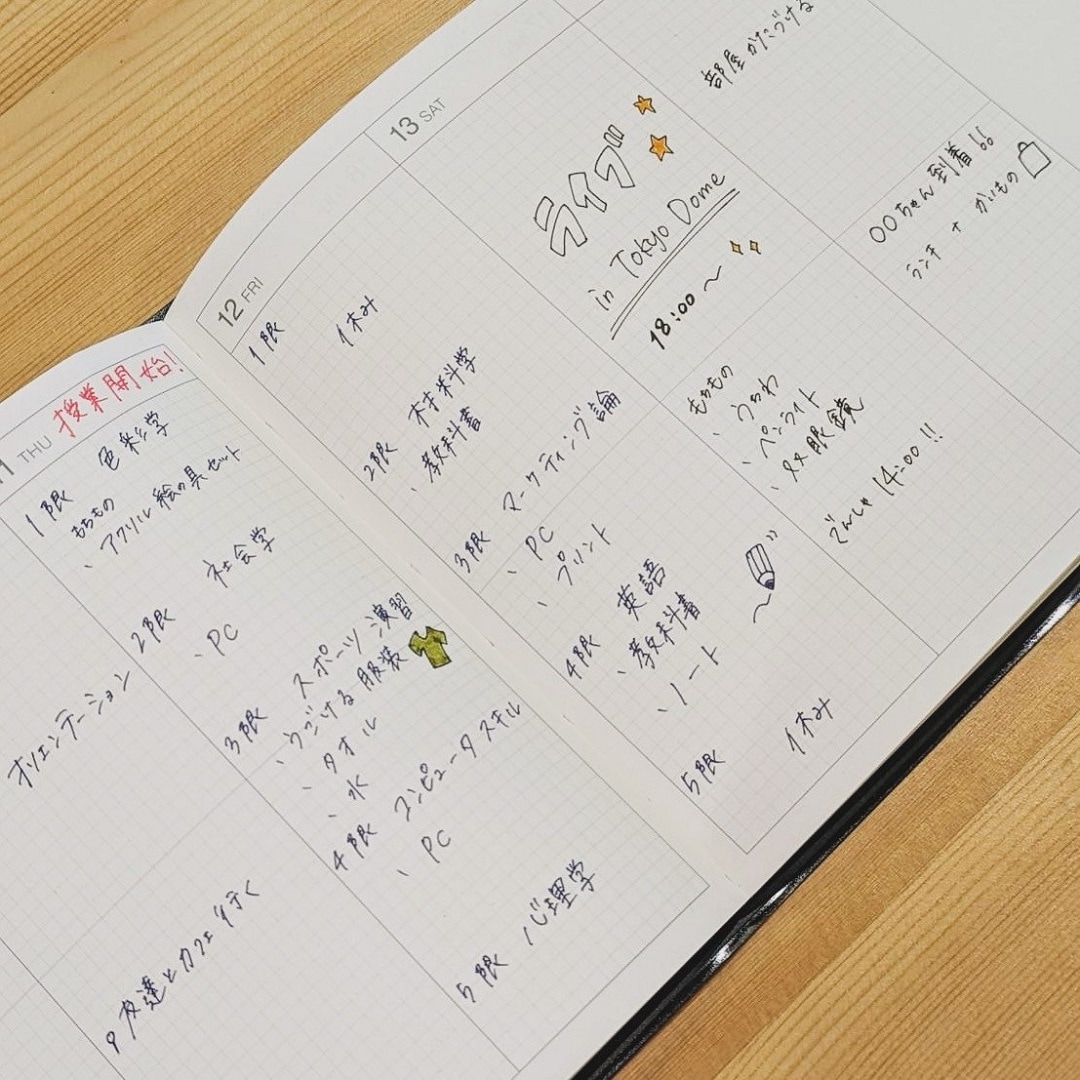 オリエンテーション
友達とカフェ行く
11 THU
授業開始!
1限 色彩学
もちもの
、アクリル絵の具セット
2限 社会学
、PC
3限 スポーツ演習
、うごける服装
、タオル
、水
4限 コンピュータスキル
、PC
5限 心理学
12 FRI
1限 休み
2限 材料学
、教科書
3限 マーケティング論
、PC
、プリント
4限 英語
、教科書
、ノート
5限 休み
13 SAT
ライブ
in Tokyo Dome
18:00〜
もちもの
、うちわ
、ペンライト
、双眼鏡
部屋かたづける
〇〇ちゃん到着!!
ランチ + かいもの
でんしゃ 14:00 !!